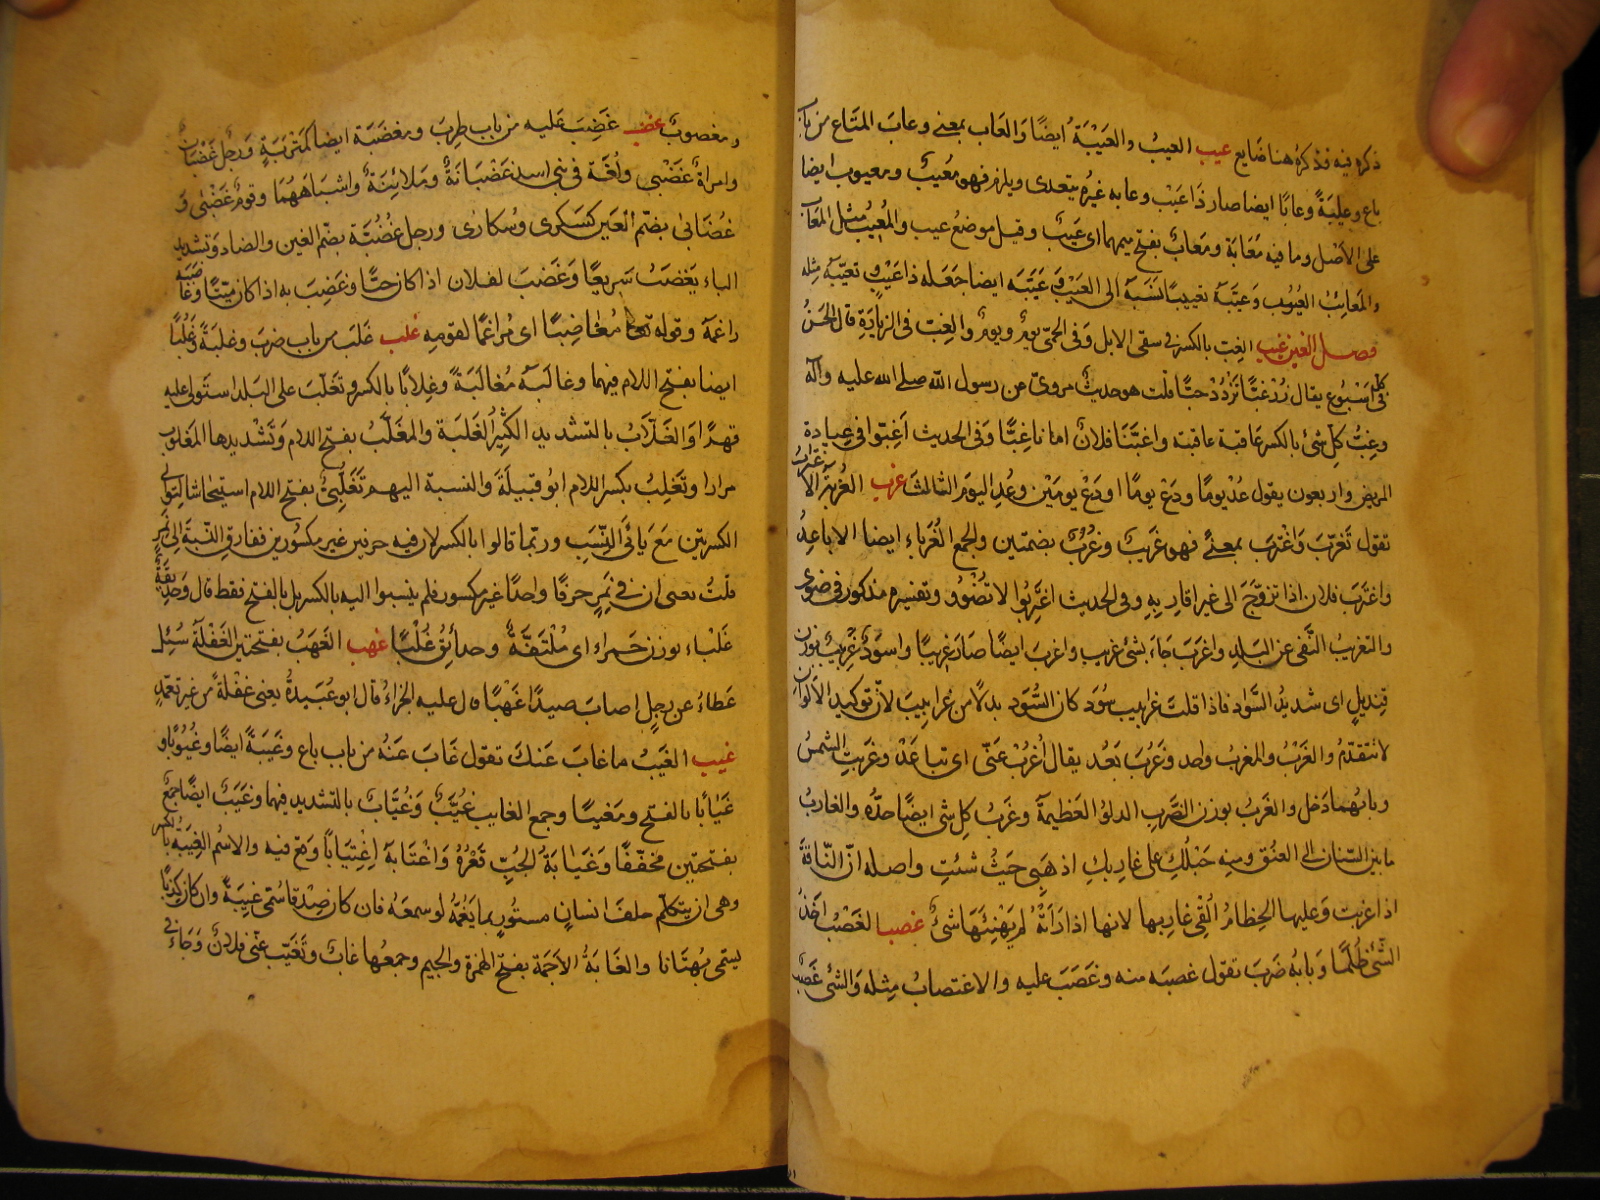 ذكره فيه فذكرهُ هنا ضايع عيب العيبُ والعَيْبَةُ ايضًا وَالعَاب بمعنىً وعابَ المتَاع من باب
باع وعليبَةً وعابًا ايضا صار ذَا عَيْب وعابه غيرُه يتعدى ويلزم فهو مُعيبٌ ومعيوب ايضا
على الاَصْل وما فيه مَعَابَة ومَعابٌ بفتح ميمهما اى عَيبٌ وقيل موضعُ عيب والمُعِيبُ مثل المَعاب
والمَعايبُ العُيوب وعَيَّبَهُ تعييبًا نَسَبَهُ الى العَيْبِ وَعَيَّبَه ايضا جَعَلَه ذا عَيْبٍ وتَعيّبَهُ مِثله
فصل الغين غبب الغِب بالكسر فى سقى الابل وَفى الحمّى يومٌ ويومٌ والغِب فى الزيادَة قال الحَسَنُ
فى كل اُسْبُوع يقال زُرْغبًّا تَزْدَدْ حبًّا قلت هو حديثٌ مروىّ عن رسول اللّه صلے الله عليه وآله
وغِبُّ كلِ شئ بالكسر عَاقبة عاقبته واغبَّنَا فلانٌ اتانا غِبًّا وَفى الحديث اَغِبّوا فى عِيادة
المريض واربعون يقول عُدْ يومًا ودَعْ يومًا اودَعْ يومَيْن وعُدِ اليومَ الثالث غرب الغُربةُ الاغتراب
تقول تَغَرَّبَ وَاغْتَرَبَ بمعنىً فهو غَريبٌ وغُرُبٌ بضمتين والجمع الغُرَباء ايضا الاباعِدُ
واغتَرَبَ فلان اذا تزوَّجَ الى غير اقاربِهِ وفى الحديث اغتَرِبُوا لا تُضْوُوْ وتفسيره مذكور فى ضوى
والتغريبُ النَّفى عن البَلدِ واَغرَبَ جَاءَ بشئ غريب واغربَ ايضًا صَارَ غرِيبًا واسوَدُ غِرْبيبٌ بوزن
قِنديلٍ اى شديدُ السَّواد فاذا قلتَ غرابيب سُوْد كان السُّوْد بدلًا من غرابيبَ لانّ توكيد الاَلوان
لا يتَقدّمُ والغَرْبُ والمغربُ واحد وغَرُبَ بَعُد يقال اُغرُبْ عَنّى اى تباعَدْ وغَرَبتِ الشمسُ
وبابهُما دَخل والغَربُ بوزن الضَّربِ الدلوُ العَظيمَةُ وغَرَبُ كلِ شئ ايضًا حدُّه والغاربُ
ما بين السّنان الى العنُق ومنه حَبْلُكِ على غاربِكِ اذهَبِى حَيثُ شئتِ واصله انّ النّاقَةَ
اذا غربت وَعليها الحِظامُ اُلْقِىَ غاربِها لانها اذا رَأَتْهُ لم يَهْنِئهَا شئٌ غصبا الغَصْبُ اخذُ
الشَّئِ ظُلمًا وَبابُه ضَربَ تقول غصبَه منه وغَصَبَ عليه والاغتصابُ مِثله وَالشئ غَصْبٌ
ومغصوبٌ غضب غَضِبَ عَليه من باب طرِبَ ومغضَبَةً ايضا كمَتْربَةٍ وَرجل غَضْبَانُ
وامراةٌ غَضْبَى ولُغَة فى بَنى اسد غَضْبَانَةٌ ومَلانَةٌ واشباهَهُمَا وقومٌ غَضْبَى وَ
غُضَابَى بضم العَين كسَكرى وسُكارى ورجل غُضُبَّة بضم الغين والضاد وتشديد
الباء يَغضَبُ سَريعًا وَغَضَبَ لفلان اذا كان حيًّا وغَضِبَ به اذا كان ميّتًا وغاضبه
راغمَه وقوله تعالى مُغاضِبًا اى مُراغمًا لقومِهِ غلب غَلَبَ من باب ضرب وغلبَةً وغَلَبًا
ايضا بفتح اللام فيهما وغالبَه مُغالَبَةً وغِلابًا بالكسر وتغَلّبَ على البَلد استَولى عليه
قهرًا والغَلّابُ بالتشديد الكَثيرُ الغَلبَة والمغَلّبُ بفتح اللام وتَشْديدها المَغلوب
مرارا وتَغلِبُ بكسر اللام ابُو قبيلَة والنسبة اليهم تَغلَبِىّ بفتح اللام استيحاشا لتوالى
الكسرتين مَعَ يائَى النَّسَبِ وربّما قالوا بالكسر لان فيه حرفين غير مكسورين ففارق النّسبةَ الى نَمِرٍ
قلتُ يعنى ان فى نَمِرٍ حرفًا واحدًا غير مكسور فلم ينسبوا اليه بالكسر بل بالفتح فقط قال وَحديقة
غَلْباء بوزن حَمراء اى مُلتفّةٌ وحدآئِقَ غُلْبًا غهب الغَهَبُ بفتحتين الغَفلَة سُئِلَ
عَطاءُ عن رجلٍ اصابَ صيدًا غَهْبًا قال عليه الجزاءُ قال ابو عُبَيدةَ يعنى غَفلَةً من غير تعمّدٍ
غيب الغَيْبُ ما غابَ عَنكَ تقول غَابَ عَنهُ من باب باع وغَيبَةً ايضًا وغُيُوبًا و
غَيَابًا بالفتح ومَغيبًا وجمع الغايب غُيَّبٌ وَغُيَّابٌ بالتشديد فيهما وغَيَبٌ ايضًا جمعٌ
بفتحتين مخفّفًا وَغَيَابَةُ الجُبِّ قَعْرُهُ وَاغتَابَهُ اِغتِيَابًا وَقعَ فيه والاسْم الغِيبَةُ بالكسر
وهى ان يتكلّم خلفَ انسانٍ مستُورٍ بما يَغُمّهُ لو سمعَه فان كان صِدْقا سُمّى غيبَةً وان كان كذِبًا
يسمى بُهتَانا والغَابَةُ الاَجَمَة بفتح الهمزة والجيم وجمعُها غابٌ وتَغَيّبَ عنّى فلانٌ وَجَاءَ فى